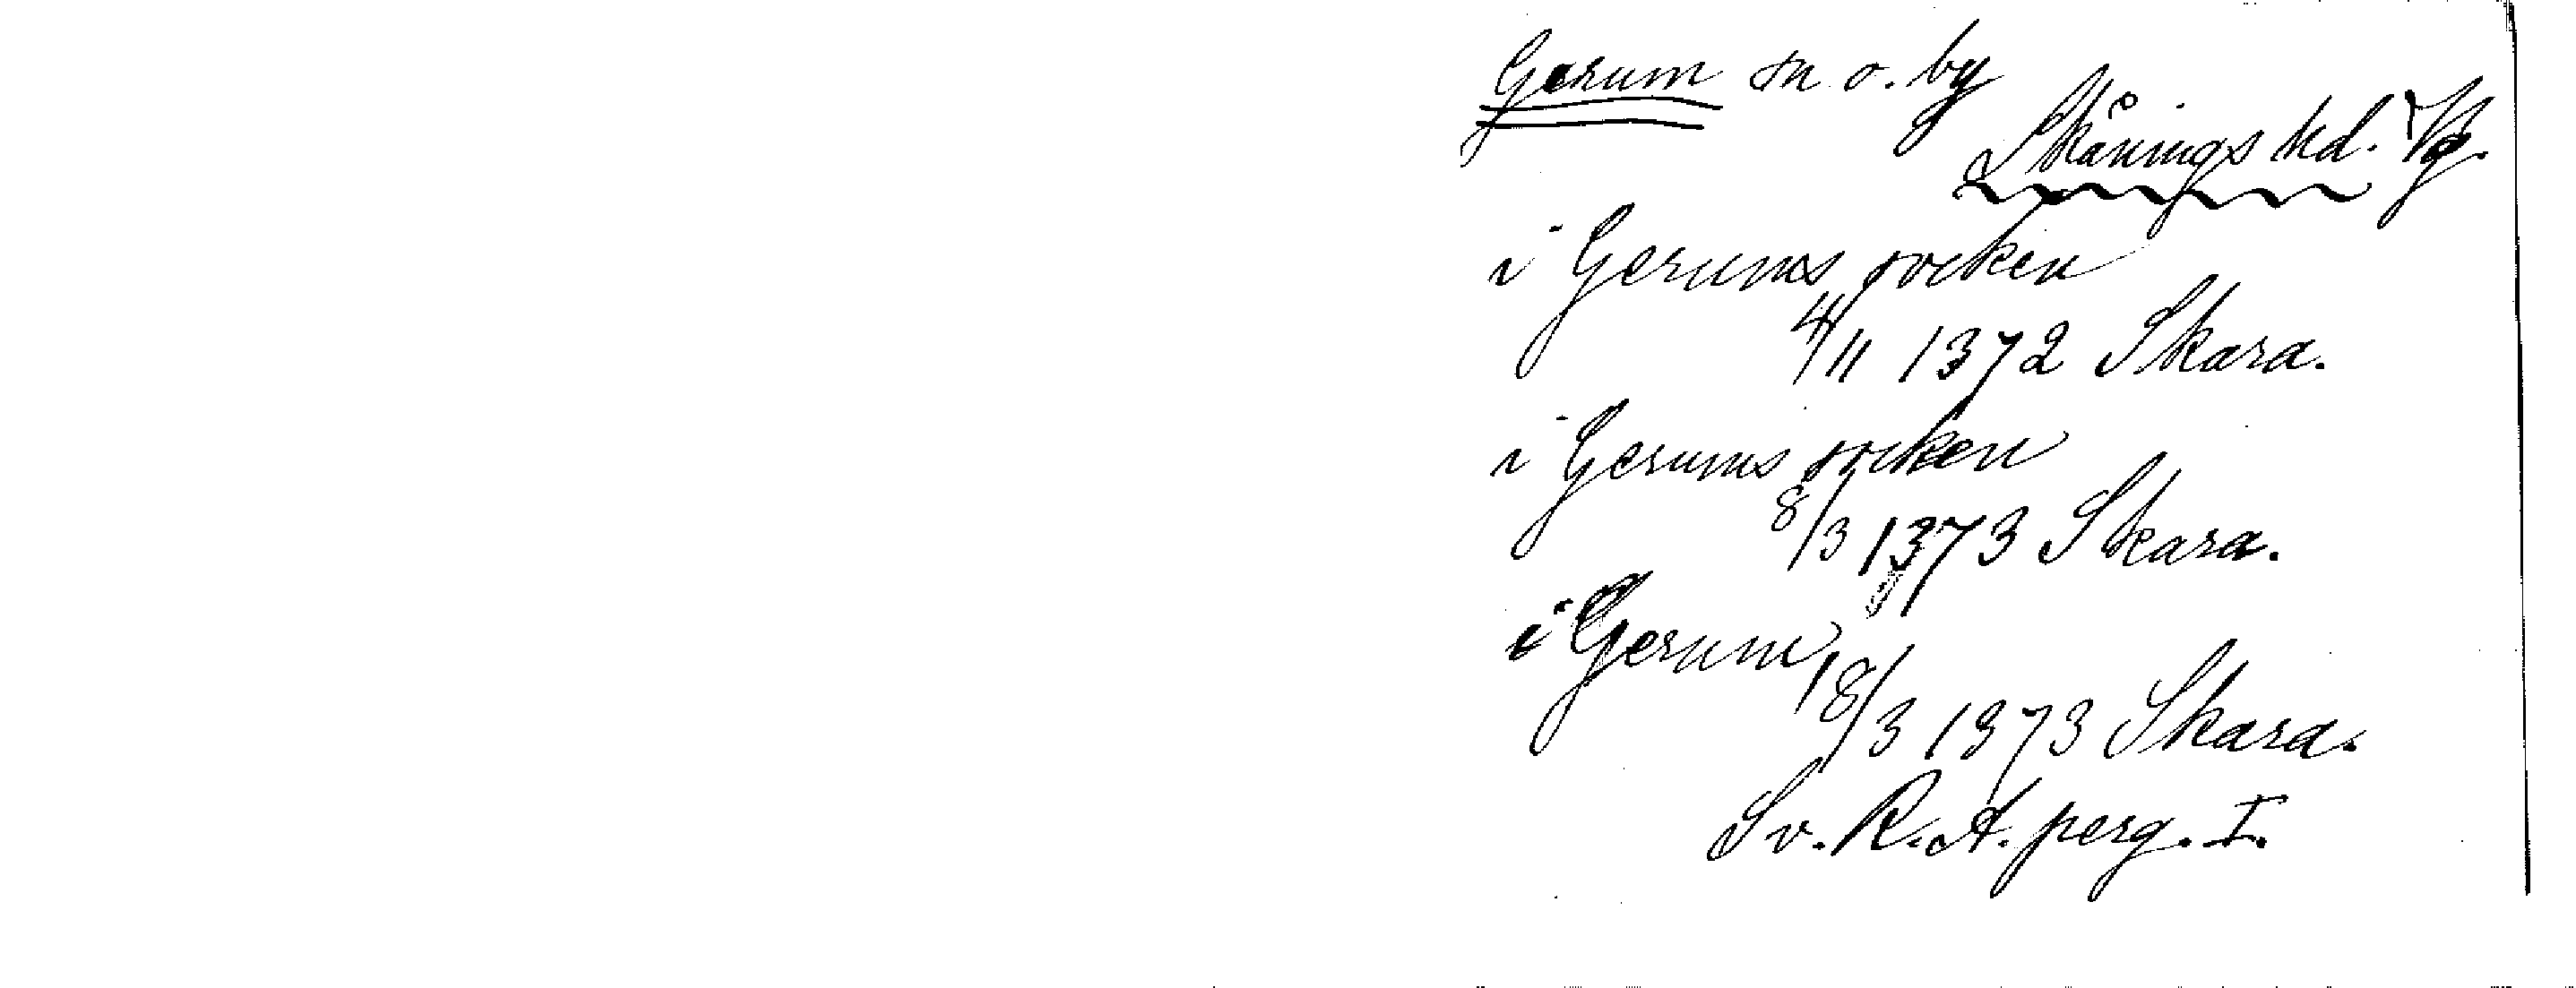 Gerum sn o. by
Skånings hd. Vg.
i Gerums socken
4/11 1372 Skara.
i Gerums socken
8/3 1373 Skara.
i Gerum
18/3 1373 Skara.
Sv. R.A. perg. I.